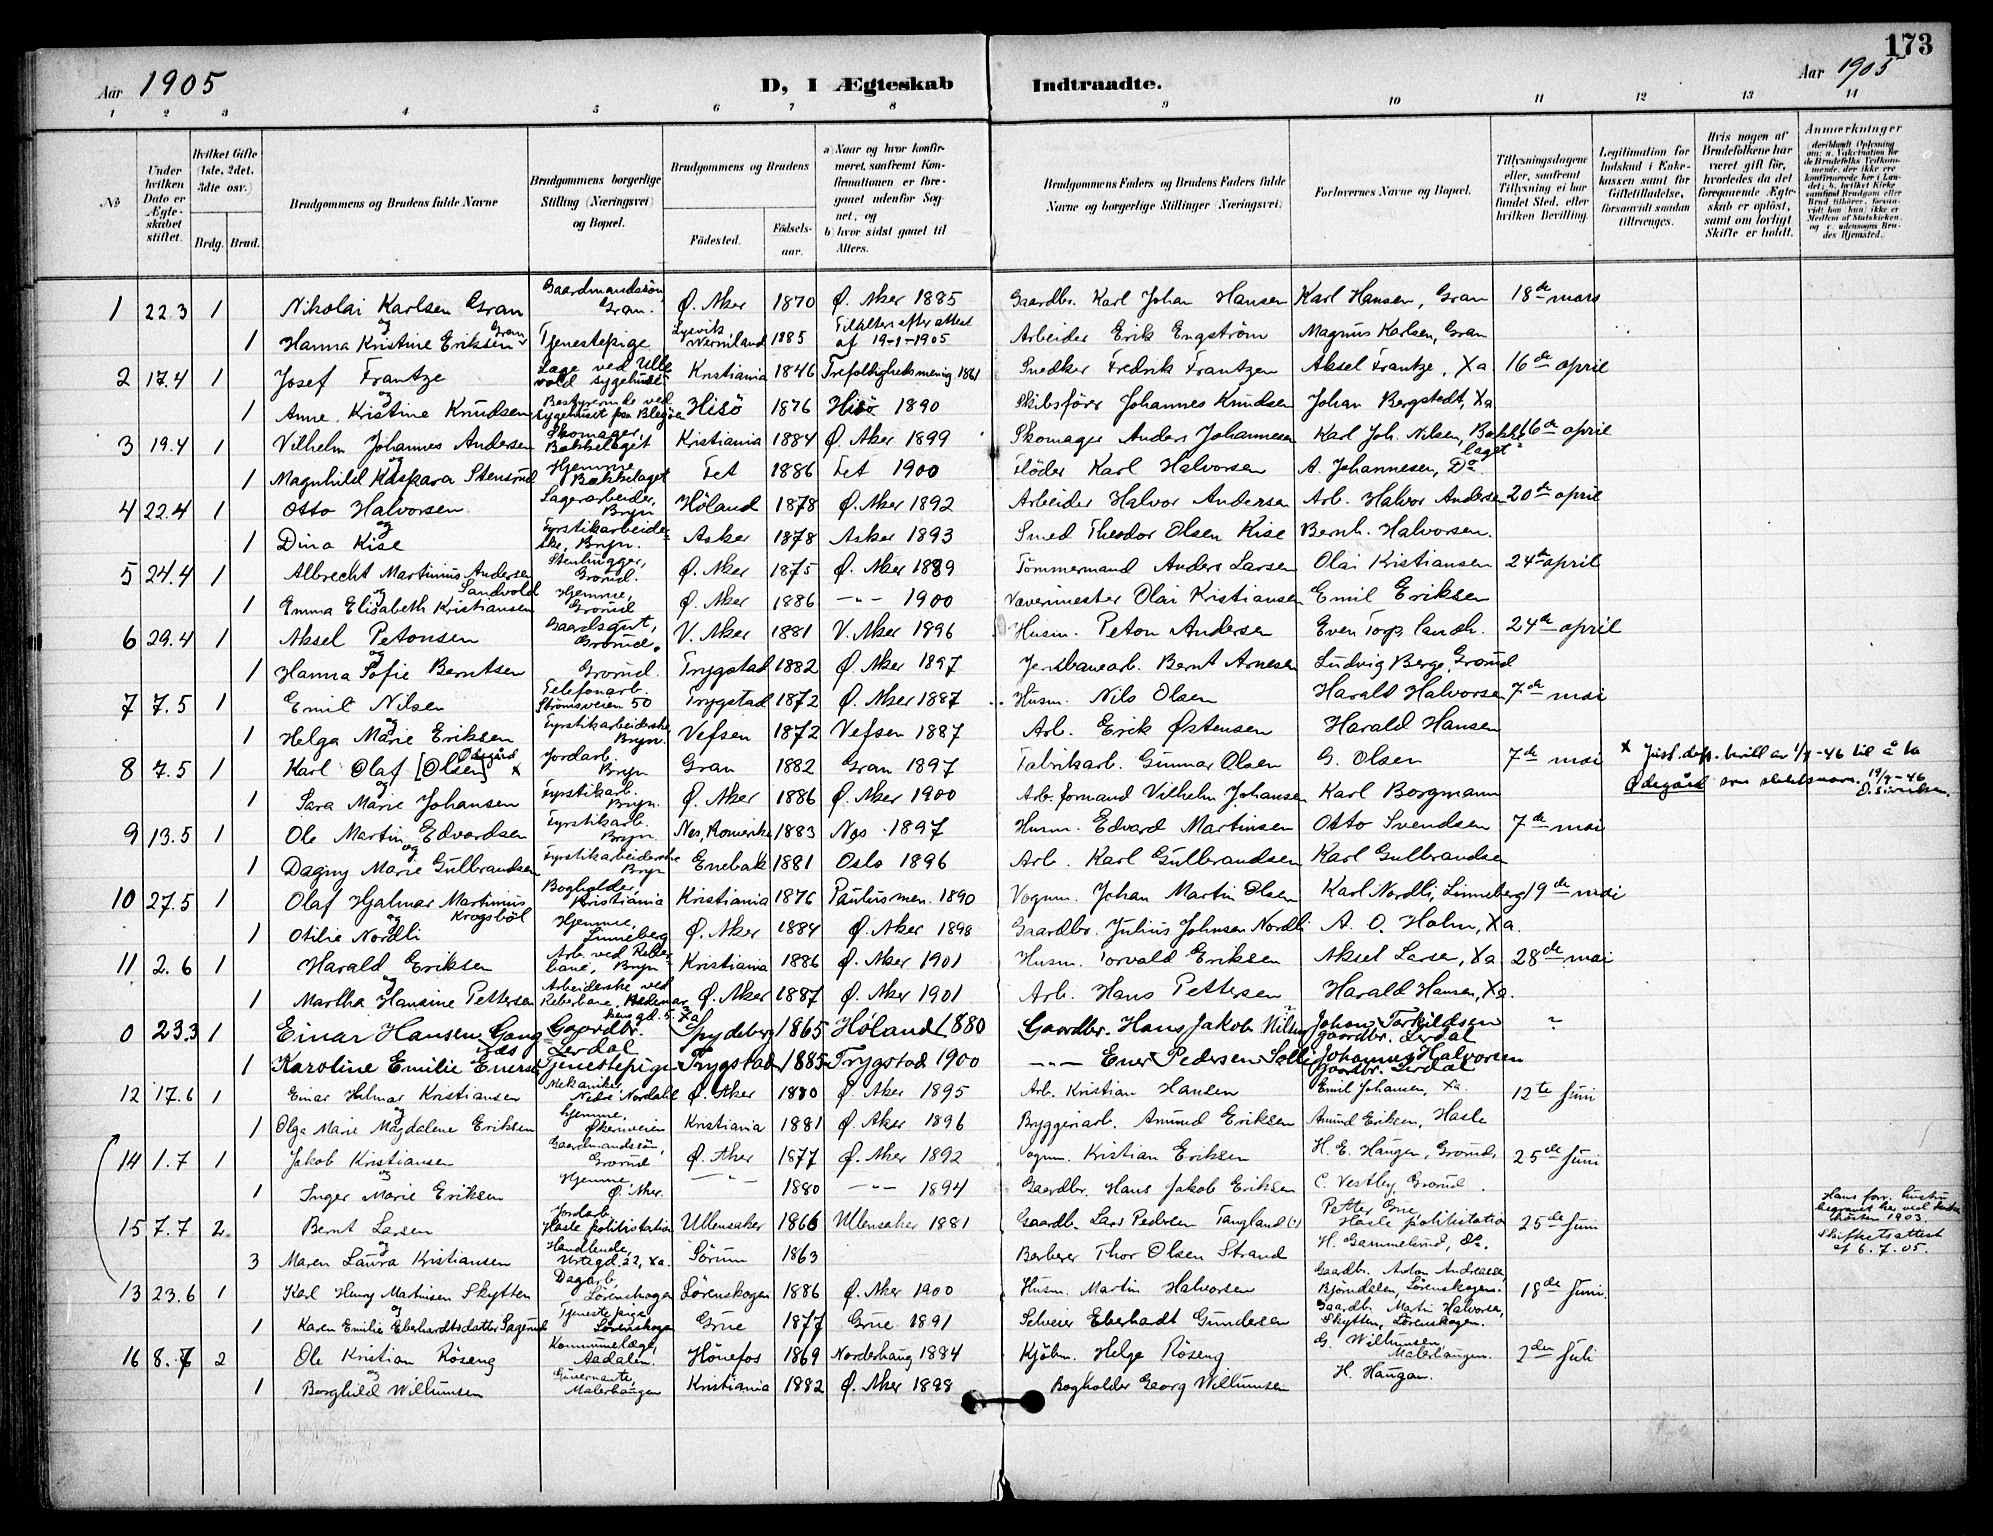 173
Aar 1905 D, I Ægteskab Indtraadte. Aar 1905
1 2 3 4 5 6 7 8 9 10 11 12 13 14
No
Under hvilken Dato er Ægteskabet stiftet.
Hvilket Gifte (1ste, 2det, 3die osv.)
Brdg. Brud.
Brudgommens og Brudens fulde Navne
Brudgommens borgerlige Stilling (Næringsvei) og Bopæl.
Brudgommens og Brudens
Fødested. Fødselsaar.
a) Naar og hvor konfirmeret, saafremt Konfirmationen er foregaaet udenfor Sognet, og
b) hvor sidst gaaet til Alters.
Brudgommens Faders og Brudens Faders fulde Navne og borgerlige Stillinger (Næringsvei)
Forlovernes Navne og Bopæl.
Tillysningsdagene eller, saafremt Tillysning ei har fundet Sted, efter hvilken Bevilling.
Legitimation for Indskud i Enkekassen samt for Giftetilladelse, forsaavidt saadan tiltrænges.
Hvis nogen af Brudefolkene har været gift før, hvorledes da det foregaaende Ægteskab er opløst, samt om lovligt Skifte er holdt.
Anmærkninger
(deriblandt Oplysning om: a. Vaccination for de Brudefolks Vedkommende, der ikke ere konfirmerede her i Landet; b. hvilket Kirkesamfund Brudgom eller Brud tilhører, forsaavidt han (hun) ikke er Medlem af Statskirken, og c. udensogns Brudes Hjemsted.
1 22.3 1 Nikolai Karlsen Gran Gaardmandssøn, Gran. Ø. Aker 1870 Ø. Aker 1885 Gaardbr. Karl Johan Hansen Karl Hansen, Gran 18de mars
og
1 Hanna Kristine Eriksen Gran Tjenestepige Lysvik, Verniland 1885 Til alters efter attest af 19-1-1905 Arbeider Erik Engström Magnus Karlsen, Gran
2 17.4 1 Josef Frantze Læge ved Ullevold sygehus Kristiania 1846 Trefoldighedsmenig 1861 Snedker Fredrik Frantzen Aksel Frantze, Xa 16de april
og
1 Anne Kristine Knudsen Bestyrerinde ved sygehuset paa Blegøen Hisö 1876 Hisö 1890 Skibsfører Johannes Knudsen Johan Bergstedt, Xa
3 19.4 1 Vilhelm Johannes Andersen Skomager, Bakkelaget Kristiania 1884 Ø. Aker 1899 Skomager Anders Johannesen Karl Joh. Nilsen, Bakkelaget 16de april
og
1 Magnhild Kaspara Stensrud Hjemme, Bakkelaget Fet 1886 Fet 1900 Fløder Karl Halvorsen A. Johannesen, Do
4 22.4 1 Otto Halvorsen Lagerarbeider, Bryn Høland 1878 Ø. Aker 1892 Arbeider Halvor Andersen Arb. Halvor Andersen 20de april
og
1 Dina Kise Fyrstikarbeiderske, Bryn. Asker 1878 Asker 1893 Smed Theodor Olsen Kise Bernh. Halvorsen.
5 24.4 1 Albrecht Martinius Andersen Sandvold Stenhugger, Grorud. Ø. Aker 1875 Ø. Aker 1889 Tömmermand Anders Larsen Olai Kristiansen 24de april
og
1 Emma Elisabeth Kristiansen Hjemme, Grorud Ø. Aker 1886 -"- 1900 Vævermester Olai Kristiansen Emil Eriksen
6 29.4 1 Aksel Petonsen Gaardsgut, Grorud. V. Aker 1881 V. Aker 1896 Husm. Peton Andersen Even Torp, 24de april
og
1 Hanna Sofie Berntsen Grorud. Trygstad 1882 Ø. Aker 1897 Jernbanearb. Bernt Arnesen Ludvig Berge, Grorud
7 7.5 1 Emil Nilsen Telefonarb. Strömsveien 50 Trygstad 1872 Ø. Aker 1887 Husm. Nils Olsen Harald Halvorsen 7de mai
og
1 Helga Marie Eriksen Fyrstikarbeiderske Bryn. Vefsen 1872 Vefsen 1887 Arb. Erik Østensen Harald Hansen
8 7.5 1 Karl Olaf [Olsen] x Ødegård Jordarb. Bryn Gran 1882 Gran 1897 Fabrikarb. Gunnar Olsen G. Olsen 7de mai x Just. dep. bevill av 1/7-46 til å ta
og
1 Sara Marie Johansen Fyrstikarb. Bryn. Ø. Aker 1886 Ø. Aker 1900 Arb. formand Vilhelm Johansen Karl Borgmann Ødegård som slektsnavn. 19/7-46
9 13.5 1 Ole Martin Edvardsen Fyrstikarb. Bryn Nes, Romerike 1883 Nes 1897 Husm. Edvard Martinsen Otto Svendsen 7de mai
og
1 Dagny Marie Gulbrandsen Fyrstikarbeiderske Bryn Enebak 1881 Oslo 1896 Arb. Karl Gulbrandsen Karl Gulbrandsen
10 27.5 1 Olaf Hjalmar Martinius Krogsböl Bogholder, Kristiania Kristiania 1876 Paulus men. 1890 Vognm. Johan Martin Olsen Karl Nordli, Linneberg 19de mai
og
1 Otilie Nordli Hjemme, Linneberg Ø. Aker 1884 Ø. Aker 1898 Gaardbr. Julius Johnsen Nordli A. O. Holm, Xa.
11 2.6 1 Harald Eriksen Arb. ved Reberbane, Bryn Kristiania 1886 Ø. Aker 1901 Husm. Torvald Eriksen Aksel Larsen, Xa 28de mai
og
1 Martha Hansine Pettersen Arbeiderske ved Reberbane, Hedemarkens gd. 5. Xa Ø. Aker 1887 Ø. Aker 1901 Arb. Hans Pettersen Harald Hansen, Xa.
0 23.3 1 Einar Hansen Gangnæs Gaardbr. Lerdal Spydeberg 1865 Høland 1880 Gaardbr. Hans Jakob Nilsen Johan Torkildsen gaardbr. Lerdal "
1 Karoline Emilie Enersen Tjenestepige Trygstad 1885 Trygstad 1900 -"- Ener Pedersen Solli Johannes Halvorsen Gaardbr. Lerdal
12 17.6 1 Einar Hilmar Kristiansen Mekaniker, Nedre Nordahl Ø. Aker 1880 Ø. Aker 1895 Arb. Kristian Hansen Emil Johansen, Xa. 12te Juni
og
1 Olga Marie Magdalene Eriksen hjemme, Økernveien Kristiania 1881 Ø. Aker 1896 Bryggeriarb. Amund Eriksen Amund Eriksen, Hasle
14 1.7 1 Jakob Kristiansen Gaardmandssön, Grorud Ø. Aker 1877 Ø. Aker 1892 Vognm. Kristian Eriksen H. E. Haugen, Grorud, 25de Juni
og
1 Inger Marie Eriksen Hjemme, Ø. Aker. -"- 1880 -"- 1894 Gaardbr. Hans Jakob Eriksen C. Vestby, Grorud.
15 7.7 2. Bernt Larsen Jordarb. Hasle politistation Ullensaker 1866 Ullensaker 1881 Gaardb. Lars Pedersen Tangland (?) Petter Grue, Hasle politistation 25de Juni Hans forr. hustru begravet her ved høsten 1903.
og
3 Maren Laura Kristiansen Handlende, Urtegd. 22, Xa. Sörum 1863 Berberer Thor Olsen Strand H. Gammelrud, do. Skifteretsattest af 6.7.05.
13 23.6 1 Karl Henry Martinsen Skytten Dagarb, Lörenskogen Lörenskogen 1886 Ø. Aker 1900 Husm. Martin Halvorsen Gaardbr. Anton Andreasen, Björndalen, Lörenskogen. 18de Juni.
og
1 Karen Emilie Eberhardtsdatter Sagerud Tjenestepige, Lörenskogen Grue 1877 Grue 1891 Selveier Eberhadt Gundersen Gaardbr. Martin Halvorsen, Skytten, Lörenskogen.
16 8.7 2 Ole Kristian Röseng Kommunelæge, Aadalen. Hönefos 1869 Norderhaug 1884 Kjöbm. Helge Röseng G. Willumsen, Malerhaugen. 2den Juli
og
1 Borghild Willumsen Guvernante, Malerhaugen Kristiania 1882 Ø. Aker 1898 Bogholder Georg Willumsen H. Haugan.